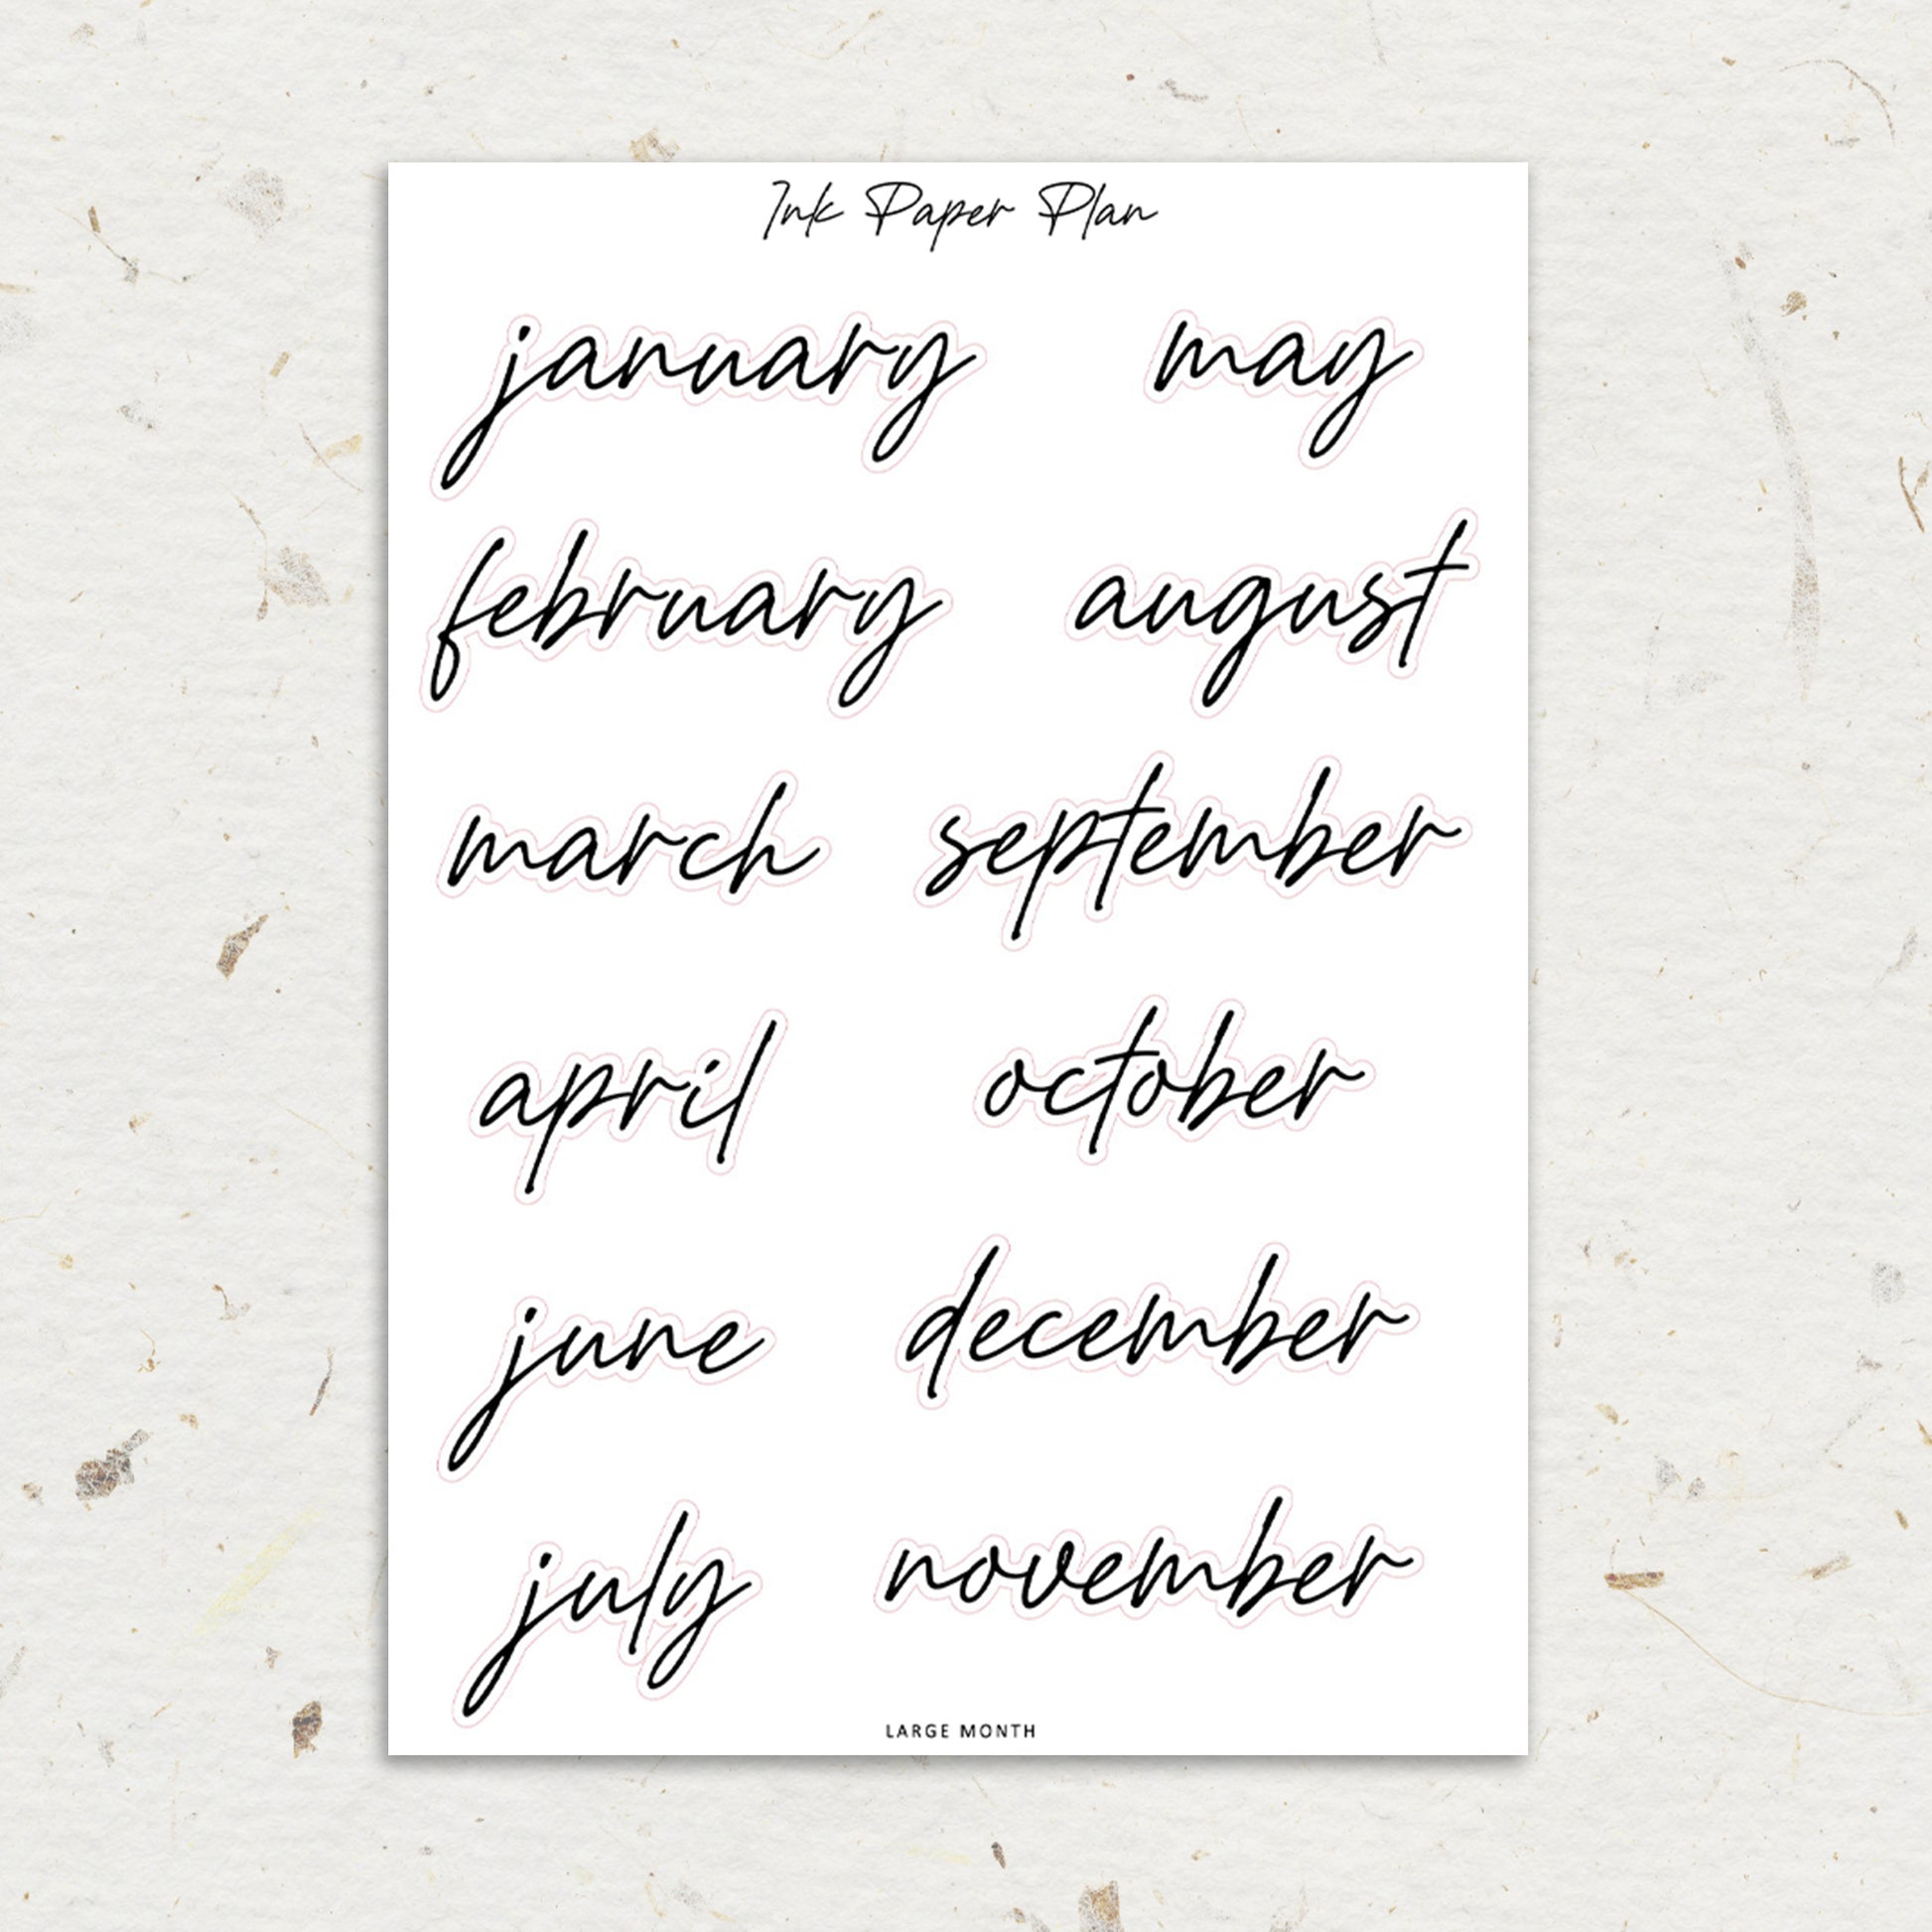 Ink Paper Plan
january may
february august
march september
april october
june december
july november
LARGE MONTH